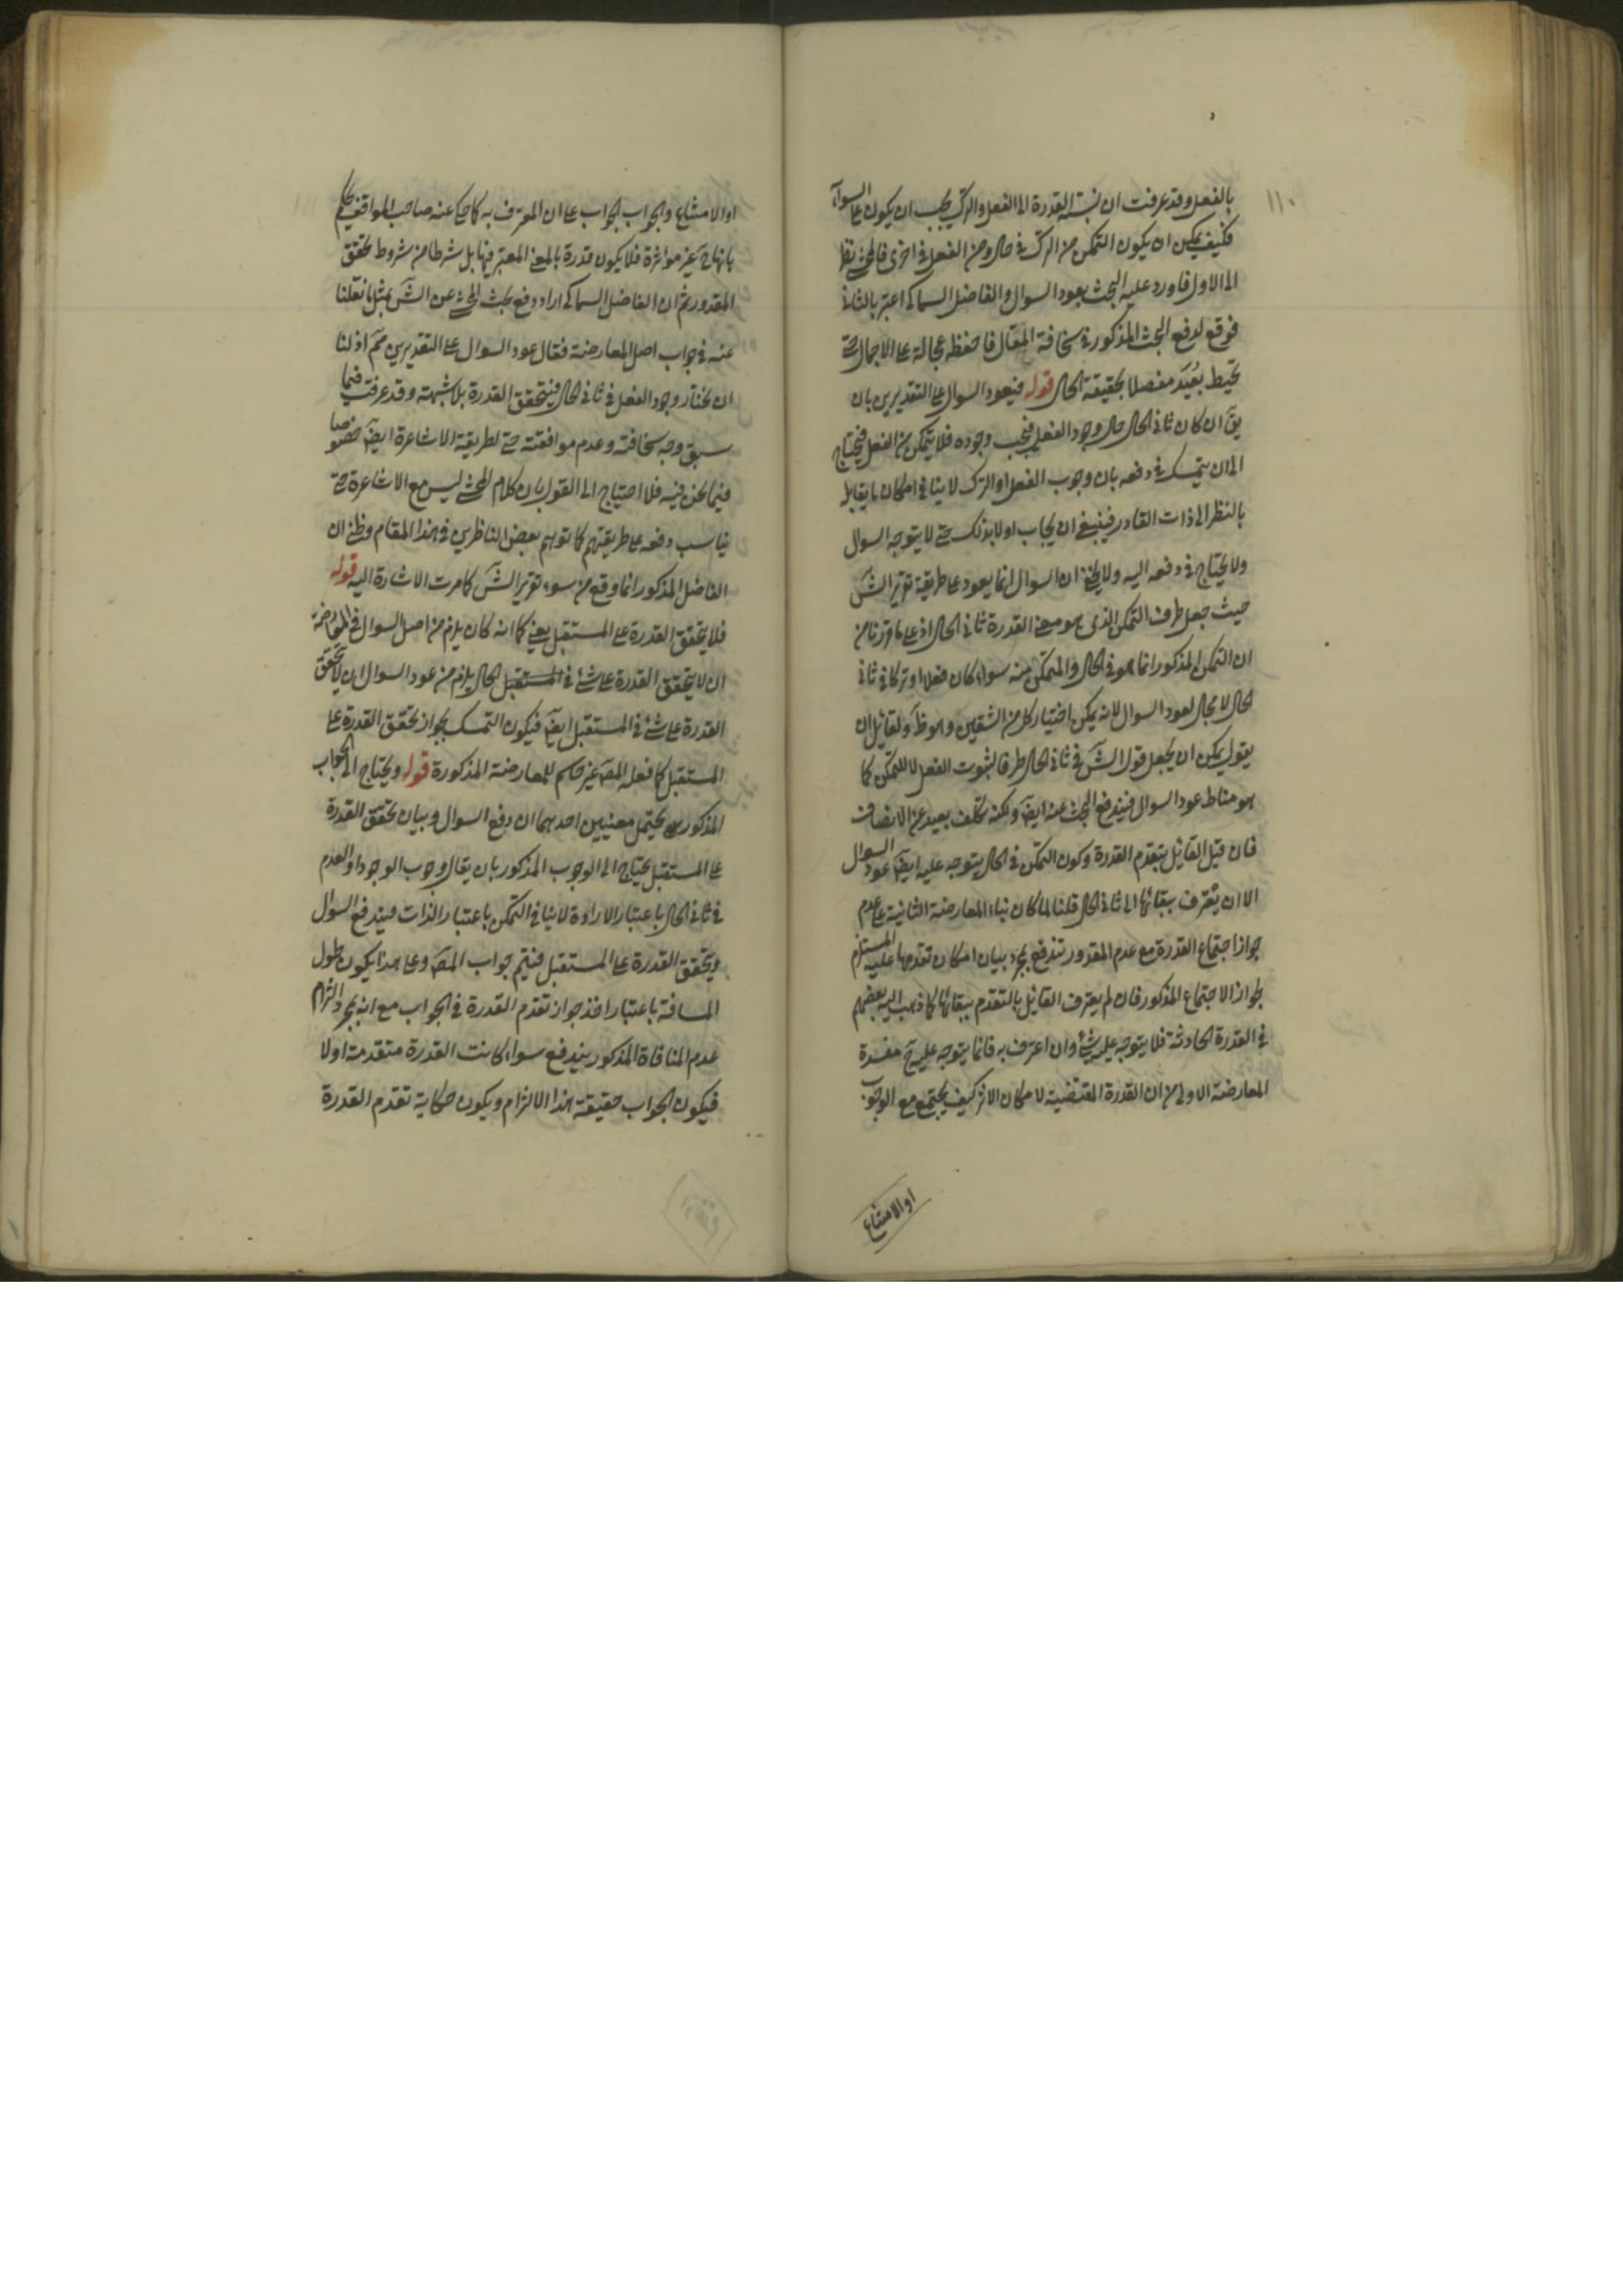 ١١٠
بالفعل وقد عرفت ان نسبة القدرة الى الفعل والترك يجب ان يكون على السواء
فكيف يمكن ان يكون التمكن من الترك في حال ومن الفعل في اخرى فالمحشي نظر
الى الاول فاورد عليه البحث بعود السوال والفاضل السماكي اعتبر بالثاني
فوقع لدفع البحث المذكور في سخافة المقال فاحفظه عجالة على الاجمال حتى
تحيط بعيد مفصلا بحقيقة الحال قوله فيعود السوال على التقديرين بان
يق ان كان ثاني الحال حال وجود الفعل فيجب وجوده فلا يتمكن من الفعل فيحتاج
الى ان يتمسك في دفعه بان وجوب الفعل او الترك لا ينافي امكان ما يقابله
بالنظر الى ذات القادر فينبغي ان يجاب اولا بذلك حتى لا يتوجه السوال
ولا يحتاج في دفعه اليه ولا يخفى ان السوال انما يعود على طريقة تقرير الش
حيث جعل ظرف التمكن الذي هو معنى القدرة ثاني الحال اذ على ما قررنا من
ان التمكن المذكور انما هو في الحال والمتمكن منه سواء كان فعلا او تركا في ثاني
الحال لا مجال لعود السوال لانه يمكن اختيار كل من الشقين وهو ظ ولقائل ان
يقول يمكن ان يجعل قول الش في ثاني الحال ظرفا لثبوت الفعل لا للتمكن كما
هو مناط عود السوال فيندفع البحث عنه ايض ولكنه تكلف بعيد عن الانصاف
فان قيل القائل بتقدم القدرة وكون التمكن في الحال يتوجه عليه ايض عود السوال
الا ان يعترف ببقائها الى ثاني الحال قلنا لما كان بناء المعارضة الثانية على عدم
جواز اجتماع القدرة مع عدم المقدور تندفع بمجرد بيان امكان تقدمها عليه المستلزم
لجواز الاجتماع المذكور فان لم يعترف القائل بالتقدم ببقائها كما ذهب اليه بعضهم
في القدرة الحادثة فلا يتوجه عليه شئ وان اعترف به فانما يتوجه عليه ح مفسدة
المعارضة الاولى من ان القدرة المقتضية لامكان الاثر كيف يجتمع مع الوجوب
او الامتناع
او الامتناع والجواب الجواب على ان المعترف به كما حكى عنه صاحب المواقف يحكم
بانها ح غير مؤثرة فلا يكون قدرة بالمعنى المعتبر فيها بل شرطا من شروط تحقق
المقدور ثم ان الفاضل السماكي اراد دفع بحث المحشي عن الش بمثل ما نقلنا
عنه في جواب اصل المعارضة فقال عود السوال على التقديرين مم اذ لنا
ان نختار وجود الفعل في ثاني الحال فيتحقق القدرة بلا شبهة وقد عرفت فيما
سبق وجه سخافته وعدم موافقته حتى لطريقة الاشاعرة ايض خصوصا
فيما نحن فيه فلا احتياج الى القول بان كلام المحشي ليس مع الاشاعرة حتى
يناسب دفعه على طريقتهم كما توهم بعض الناظرين في هذا المقام وظني ان
الفاضل المذكور انما وقع من سوء تقرير الش كما مرت الاشارة اليه قوله
فلا يتحقق القدرة على المستقبل يعني كما انه كان يلزم من اصل السوال في المعارضة
ان لا يتحقق القدرة على شئ في المستقبل الحال يلزم من عود السوال ان لا يتحقق
القدرة على شئ في المستقبل ايض فيكون التمسك بجواز تحقق القدرة على
المستقبل كما فعله المص غير حاسم للمعارضة المذكورة قوله ويحتاج الى الجواب
المذكور يحتمل معنيين احدهما ان دفع السوال وبيان تحقق القدرة
على المستقبل يحتاج الى الوجوب المذكور بان يقال وجوب الوجود او العدم
في ثاني الحال باعتبار الارادة لا ينافي التمكن باعتبار الذات فيندفع السوال
ويتحقق القدرة على المستقبل فيتم جواب المص وعلى هذا يكون طول
المسافة باعتبار اخذ جواز تقدم القدرة في الجواب مع انه بمجرد التزام
عدم المنافاة المذكور يندفع سواء كانت القدرة متقدمة اولا
فيكون الجواب حقيقة هذا الالتزام ويكون حكاية تقدم القدرة